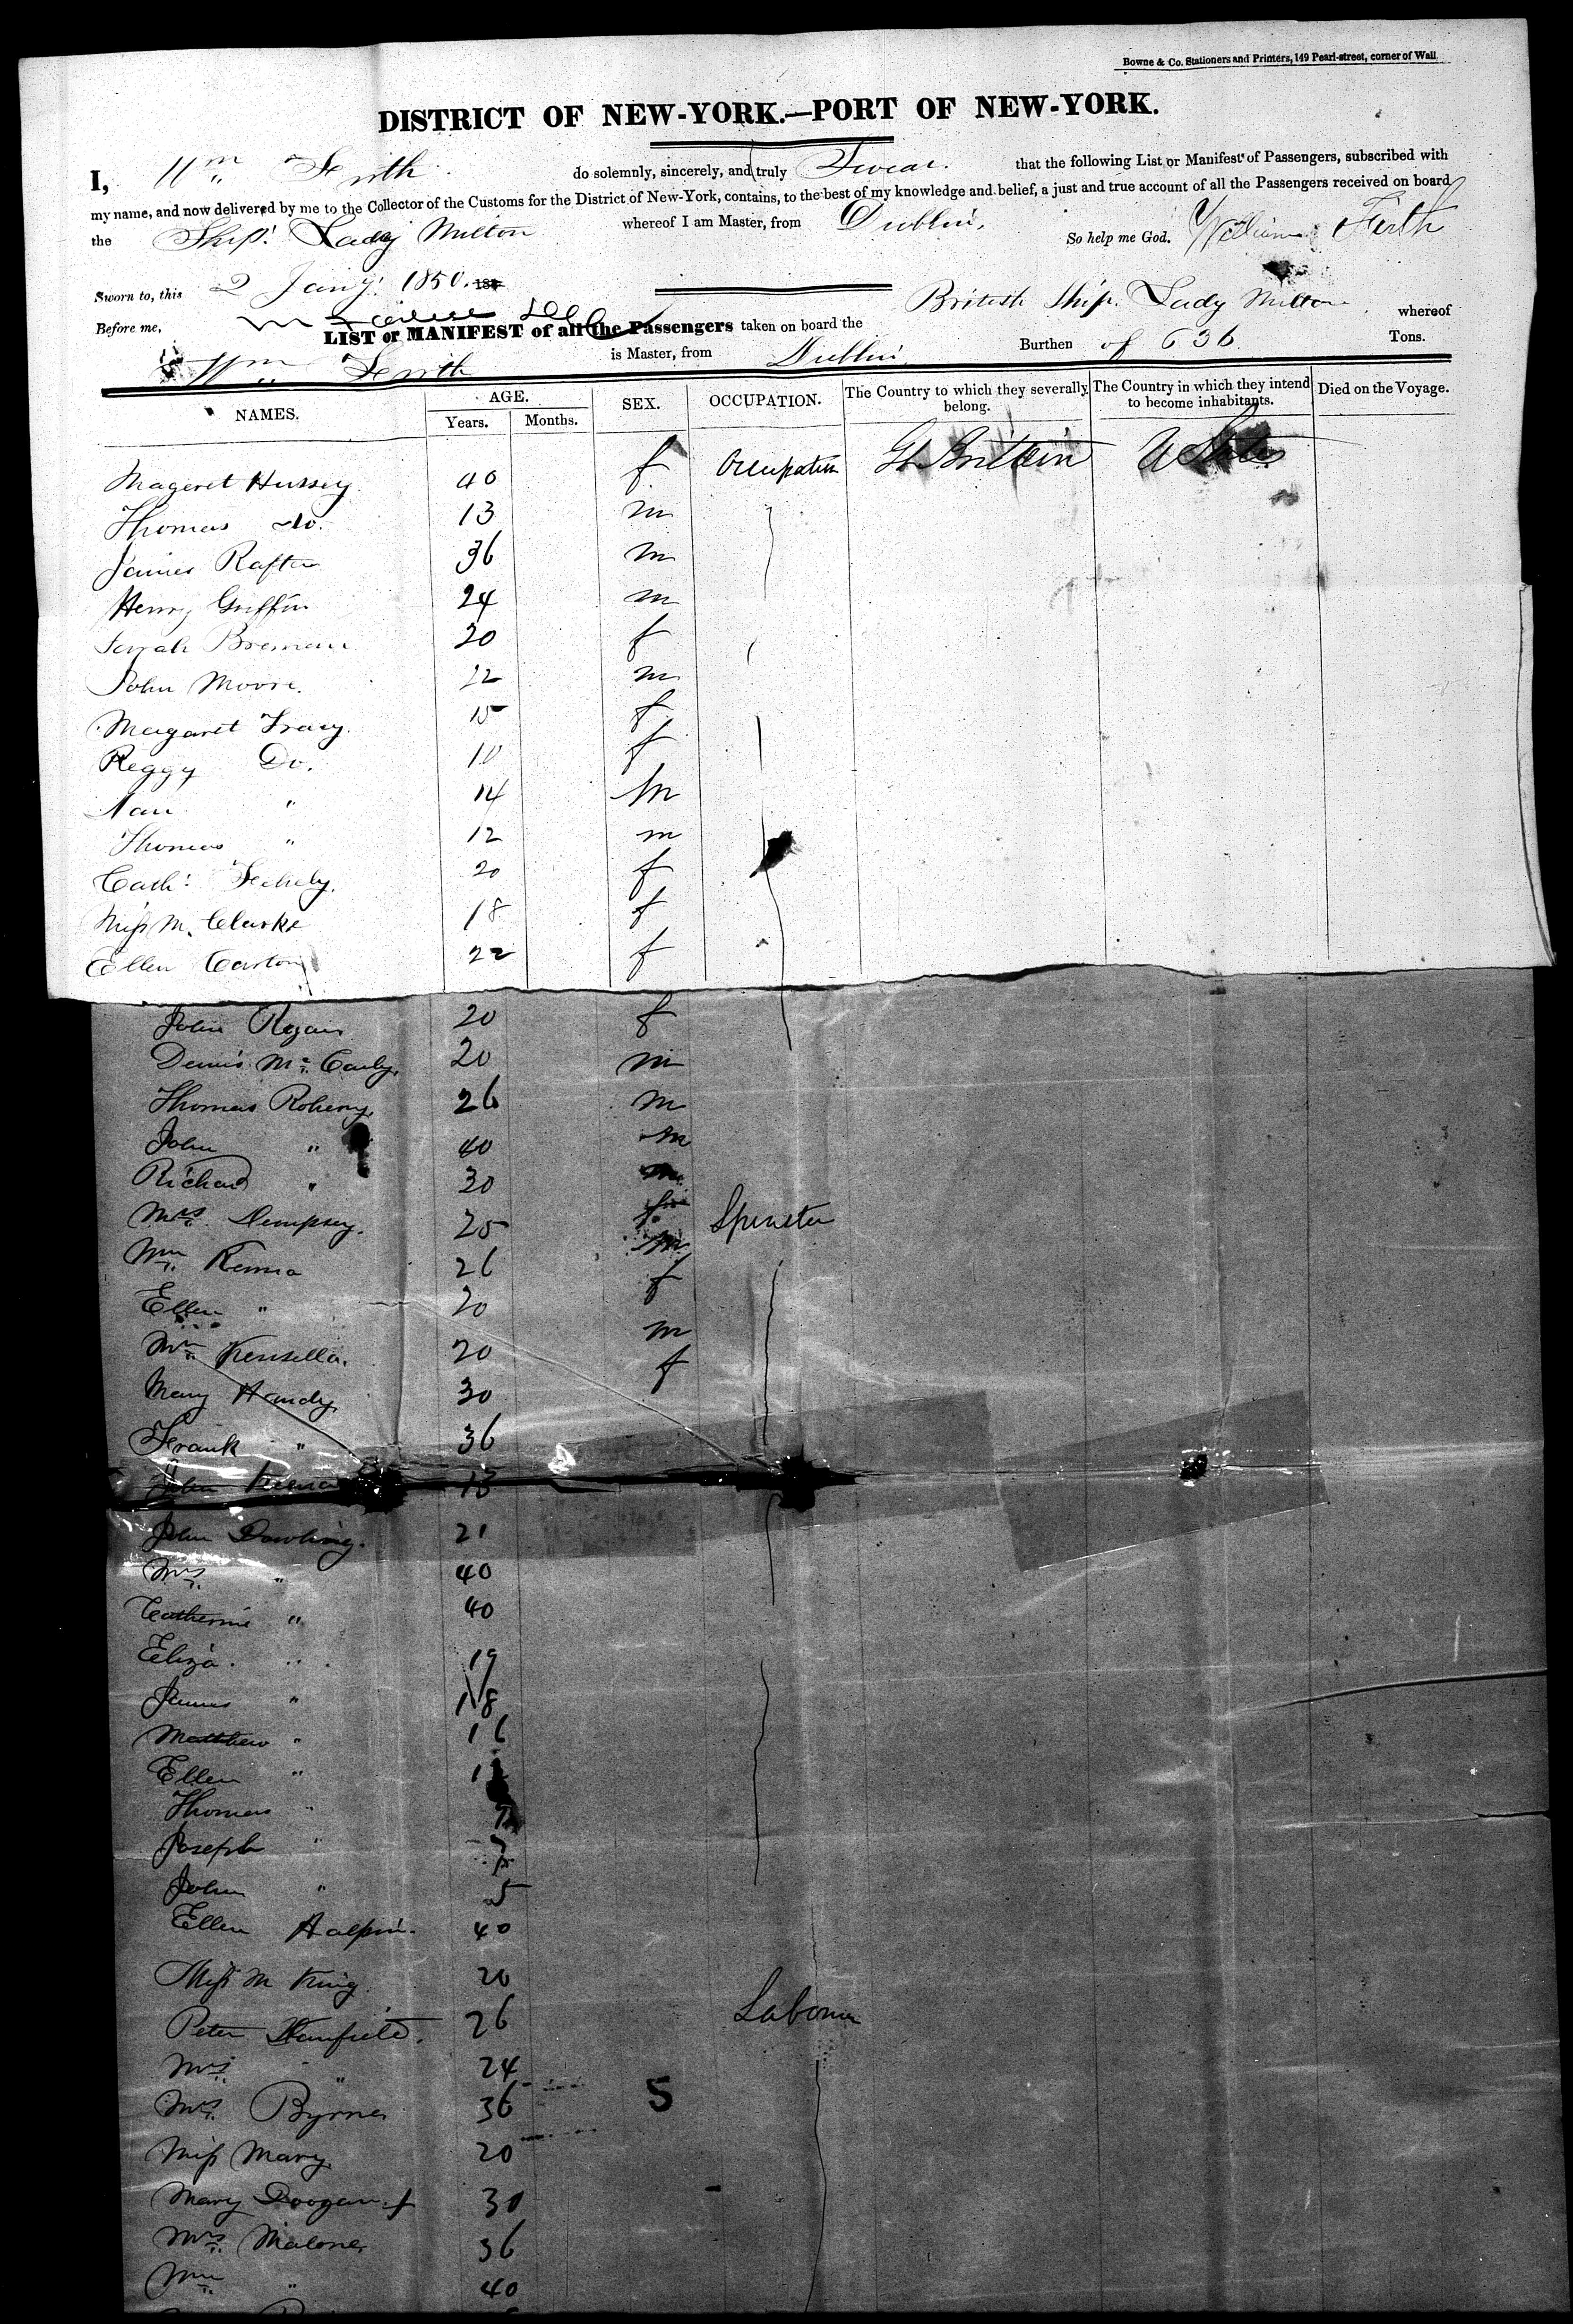 Bowne & Co. Stationers and Printers, 149 Pearl-street, corner of Wall.
DISTRICT OF NEW-YORK.—PORT OF NEW-YORK.
I, Wm Ferith do solemnly, sincerely, and truly Swear that the following List or Manifest of Passengers, subscribed with
my name, and now delivered by me to the Collector of the Customs for the District of New-York, contains, to the best of my knowledge and belief, a just and true account of all the Passengers received on board
the Ship Lady Milton whereof I am Master, from Dublin, So help me God. William Ferth
Sworn to, this 2 Jany. 1850. 184
Before me,
LIST or MANIFEST of all the Passengers taken on board the British Ship. Lady Milton whereof
Wm Ferith is Master, from Dublin Burthen of 636 Tons.
NAMES. AGE. SEX. OCCUPATION. The Country to which they severally belong. The Country in which they intend to become inhabitants. Died on the Voyage.
Years. Months.
Mageret Hussey 40 f Occupation Gt Brittin U States
Thomas do. 13 m
James Rafter 36 m
Henry Griffin 24 m
Sarrah Brennan 20 f
John Moore. 22 m
Margaret Tracy. 15 f
Peggy Do. 10 f
" 14 m
Thomas " 12 m
Cath: 20 f
Miss M. Clarke 18 f
Ellen Carton 22 f
John Regan 20 f
Dennis Mc Carty. 20 m
Thomas Roheny 26 m
John " 40 m
Richard " 30 m
Mrs. Dempsey. 25 f Spinster
Wm. Kenna 26 m
Ellen " 20 f
Mr. Kensella. 20 m
Mary Handy 30 f
Frank " 36
John 13
John Dowling. 21
Mrs. " 40
Catherine " 40
Eliza. " 19
James " 18
Matthew " 16
Ellen "
Thomas "
Joseph " 7
John " 5
Ellen Halpin. 40
Miss M King 20
Peter Hanfield. 26 Labourer
Mrs. " 24
Mrs. Byrne 36 5
Miss Mary 20
Mary Doogan f 30
Mrs. Malone 36
Wm " 40